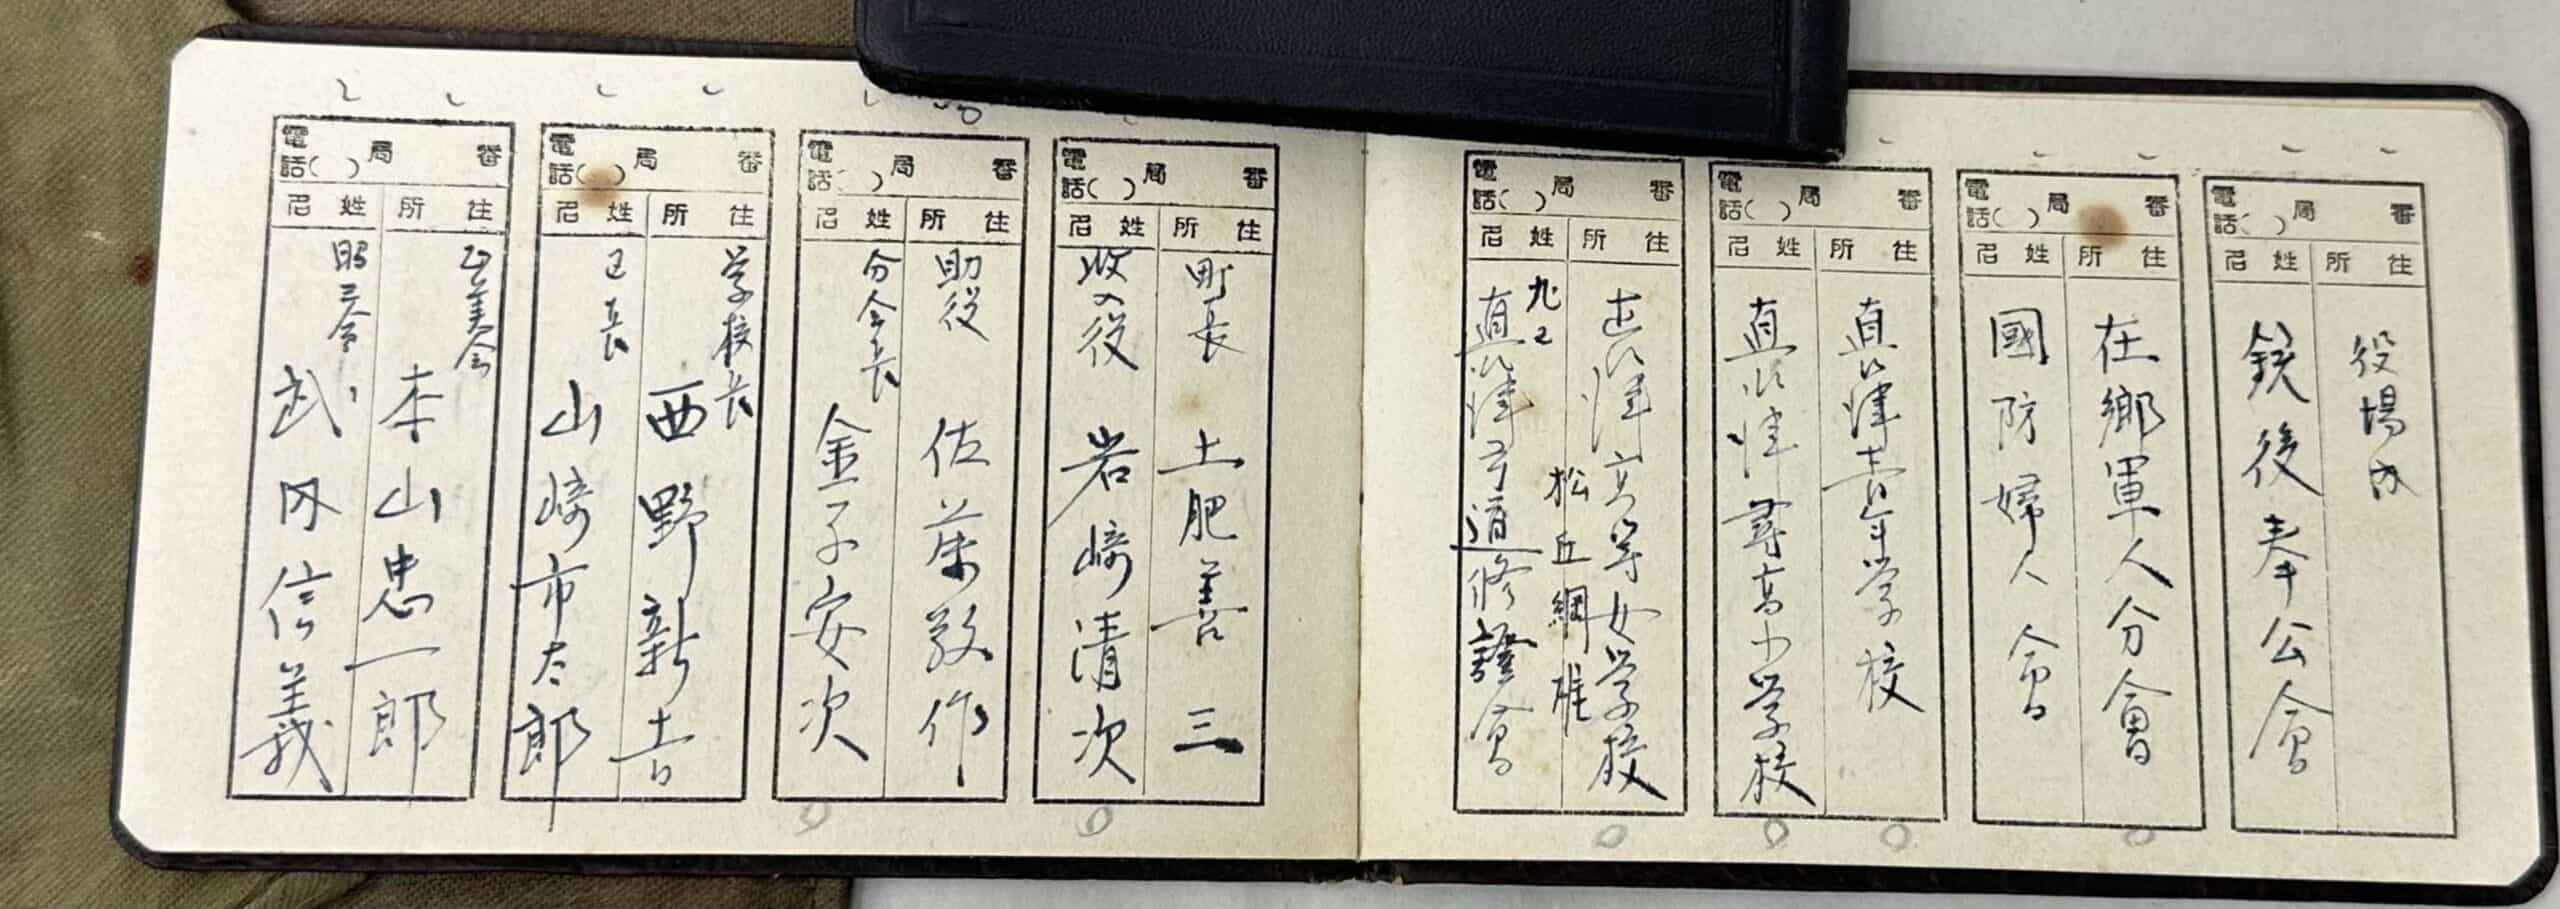 電話( )局 番
住所 姓名
役場内
銃後奉公會
電話( )局 番
住所 姓名
在郷軍人分會
國防婦人會
電話( )局 番
住所 姓名
直江津青年学校
直江津尋高小学校
電話( )局 番
住所 姓名
直江津高等女学校
松丘綱雄
直江津弓道修證會
電話( )局 番
住所 姓名
町長 土肥善三
收入役 岩崎清次
電話( )局 番
住所 姓名
助役 佐藤敬作
分会長 金子安次
電話( )局 番
住所 姓名
学校長 西野新吉
山崎市太郎
電話( )局 番
住所 姓名
本山忠一郎
武田信義